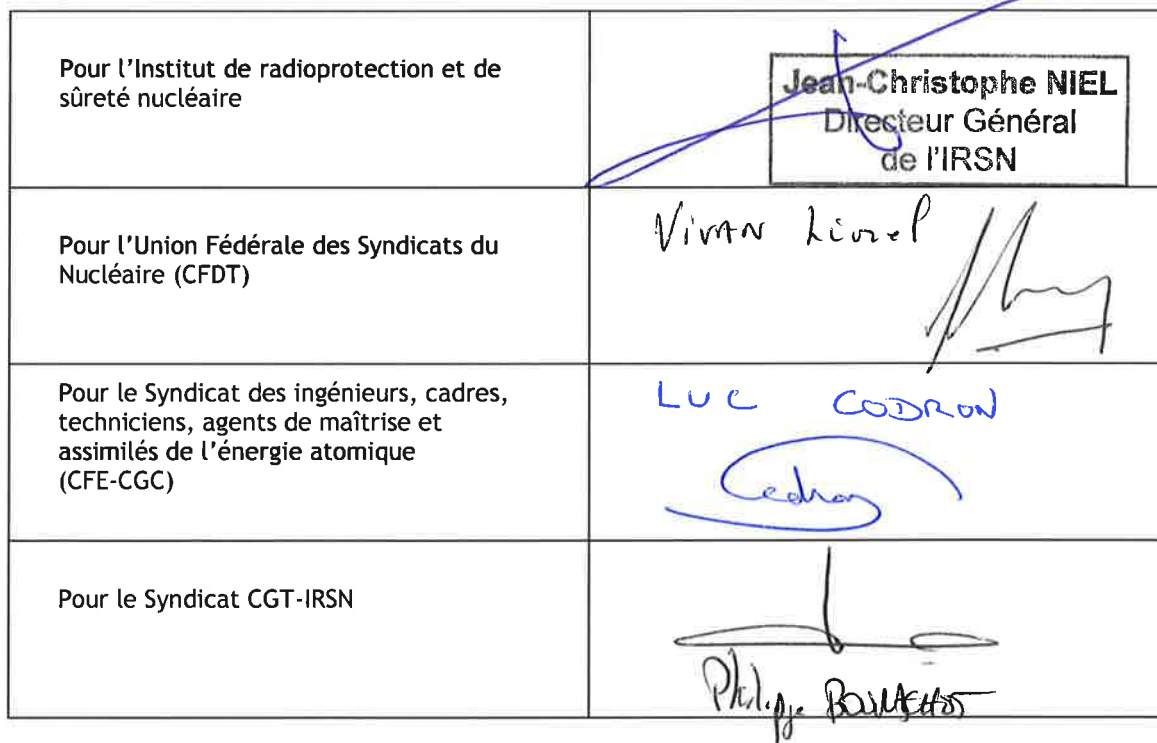 Pour l'Institut de radioprotection et de
sûreté nucléaire
Jean-Christophe NIEL
Directeur Général
de l'IRSN
Pour l'Union Fédérale des Syndicats du
Nucléaire (CFDT)
VivAN Lionel
Pour le Syndicat des ingénieurs, cadres,
techniciens, agents de maîtrise et
assimilés de l'énergie atomique
(CFE-CGC)
LUC CODRON
Codron
Pour le Syndicat CGT-IRSN
Philippe